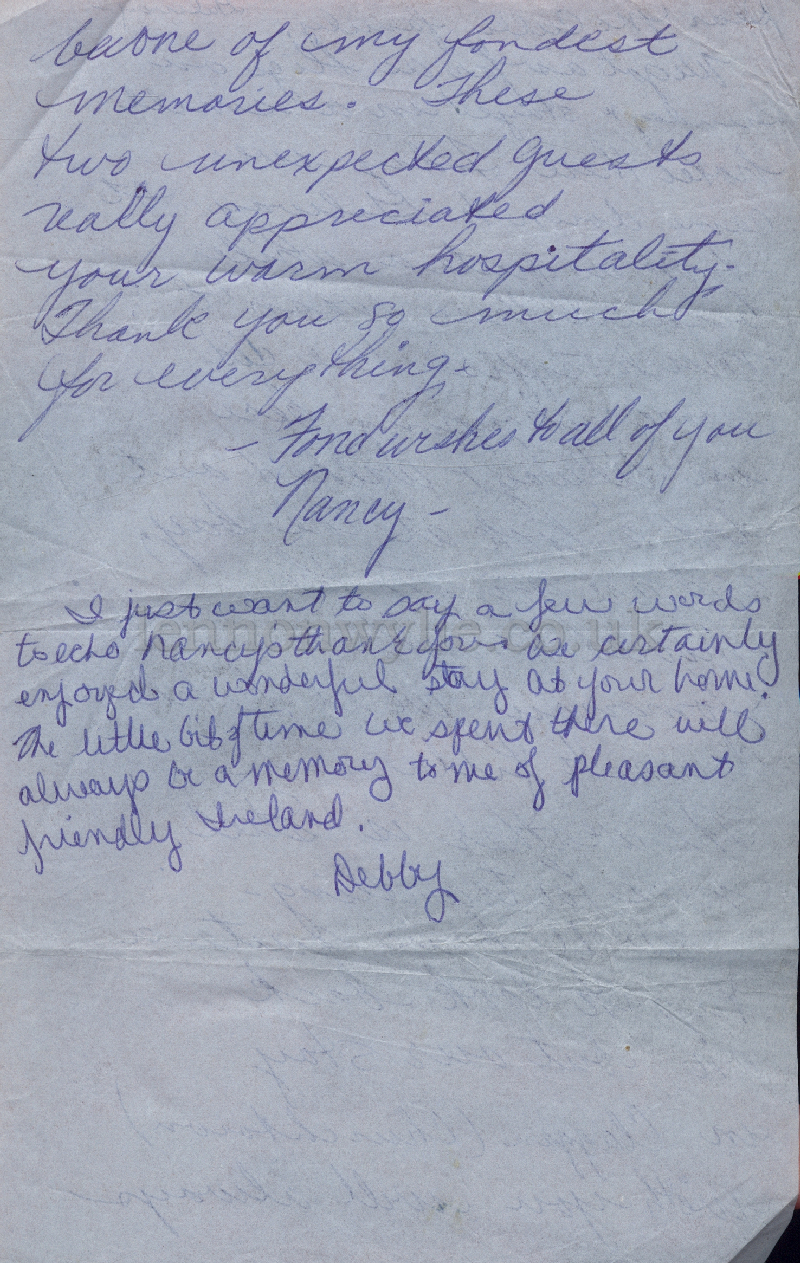 be one of my fondest
memories. These
two unexpected guests
really appreciated
your warm hospitality.
Thank you so much
for everything.
- Fond wishes to all of you
Nancy -
I just want to say a few words
to echo Nancys thank you. We certainly
enjoyed a wonderful stay at your home.
The little bit of time we spent there will
always be a memory to me of pleasant
friendly Ireland.
Debby
lennonwylie.co.uk